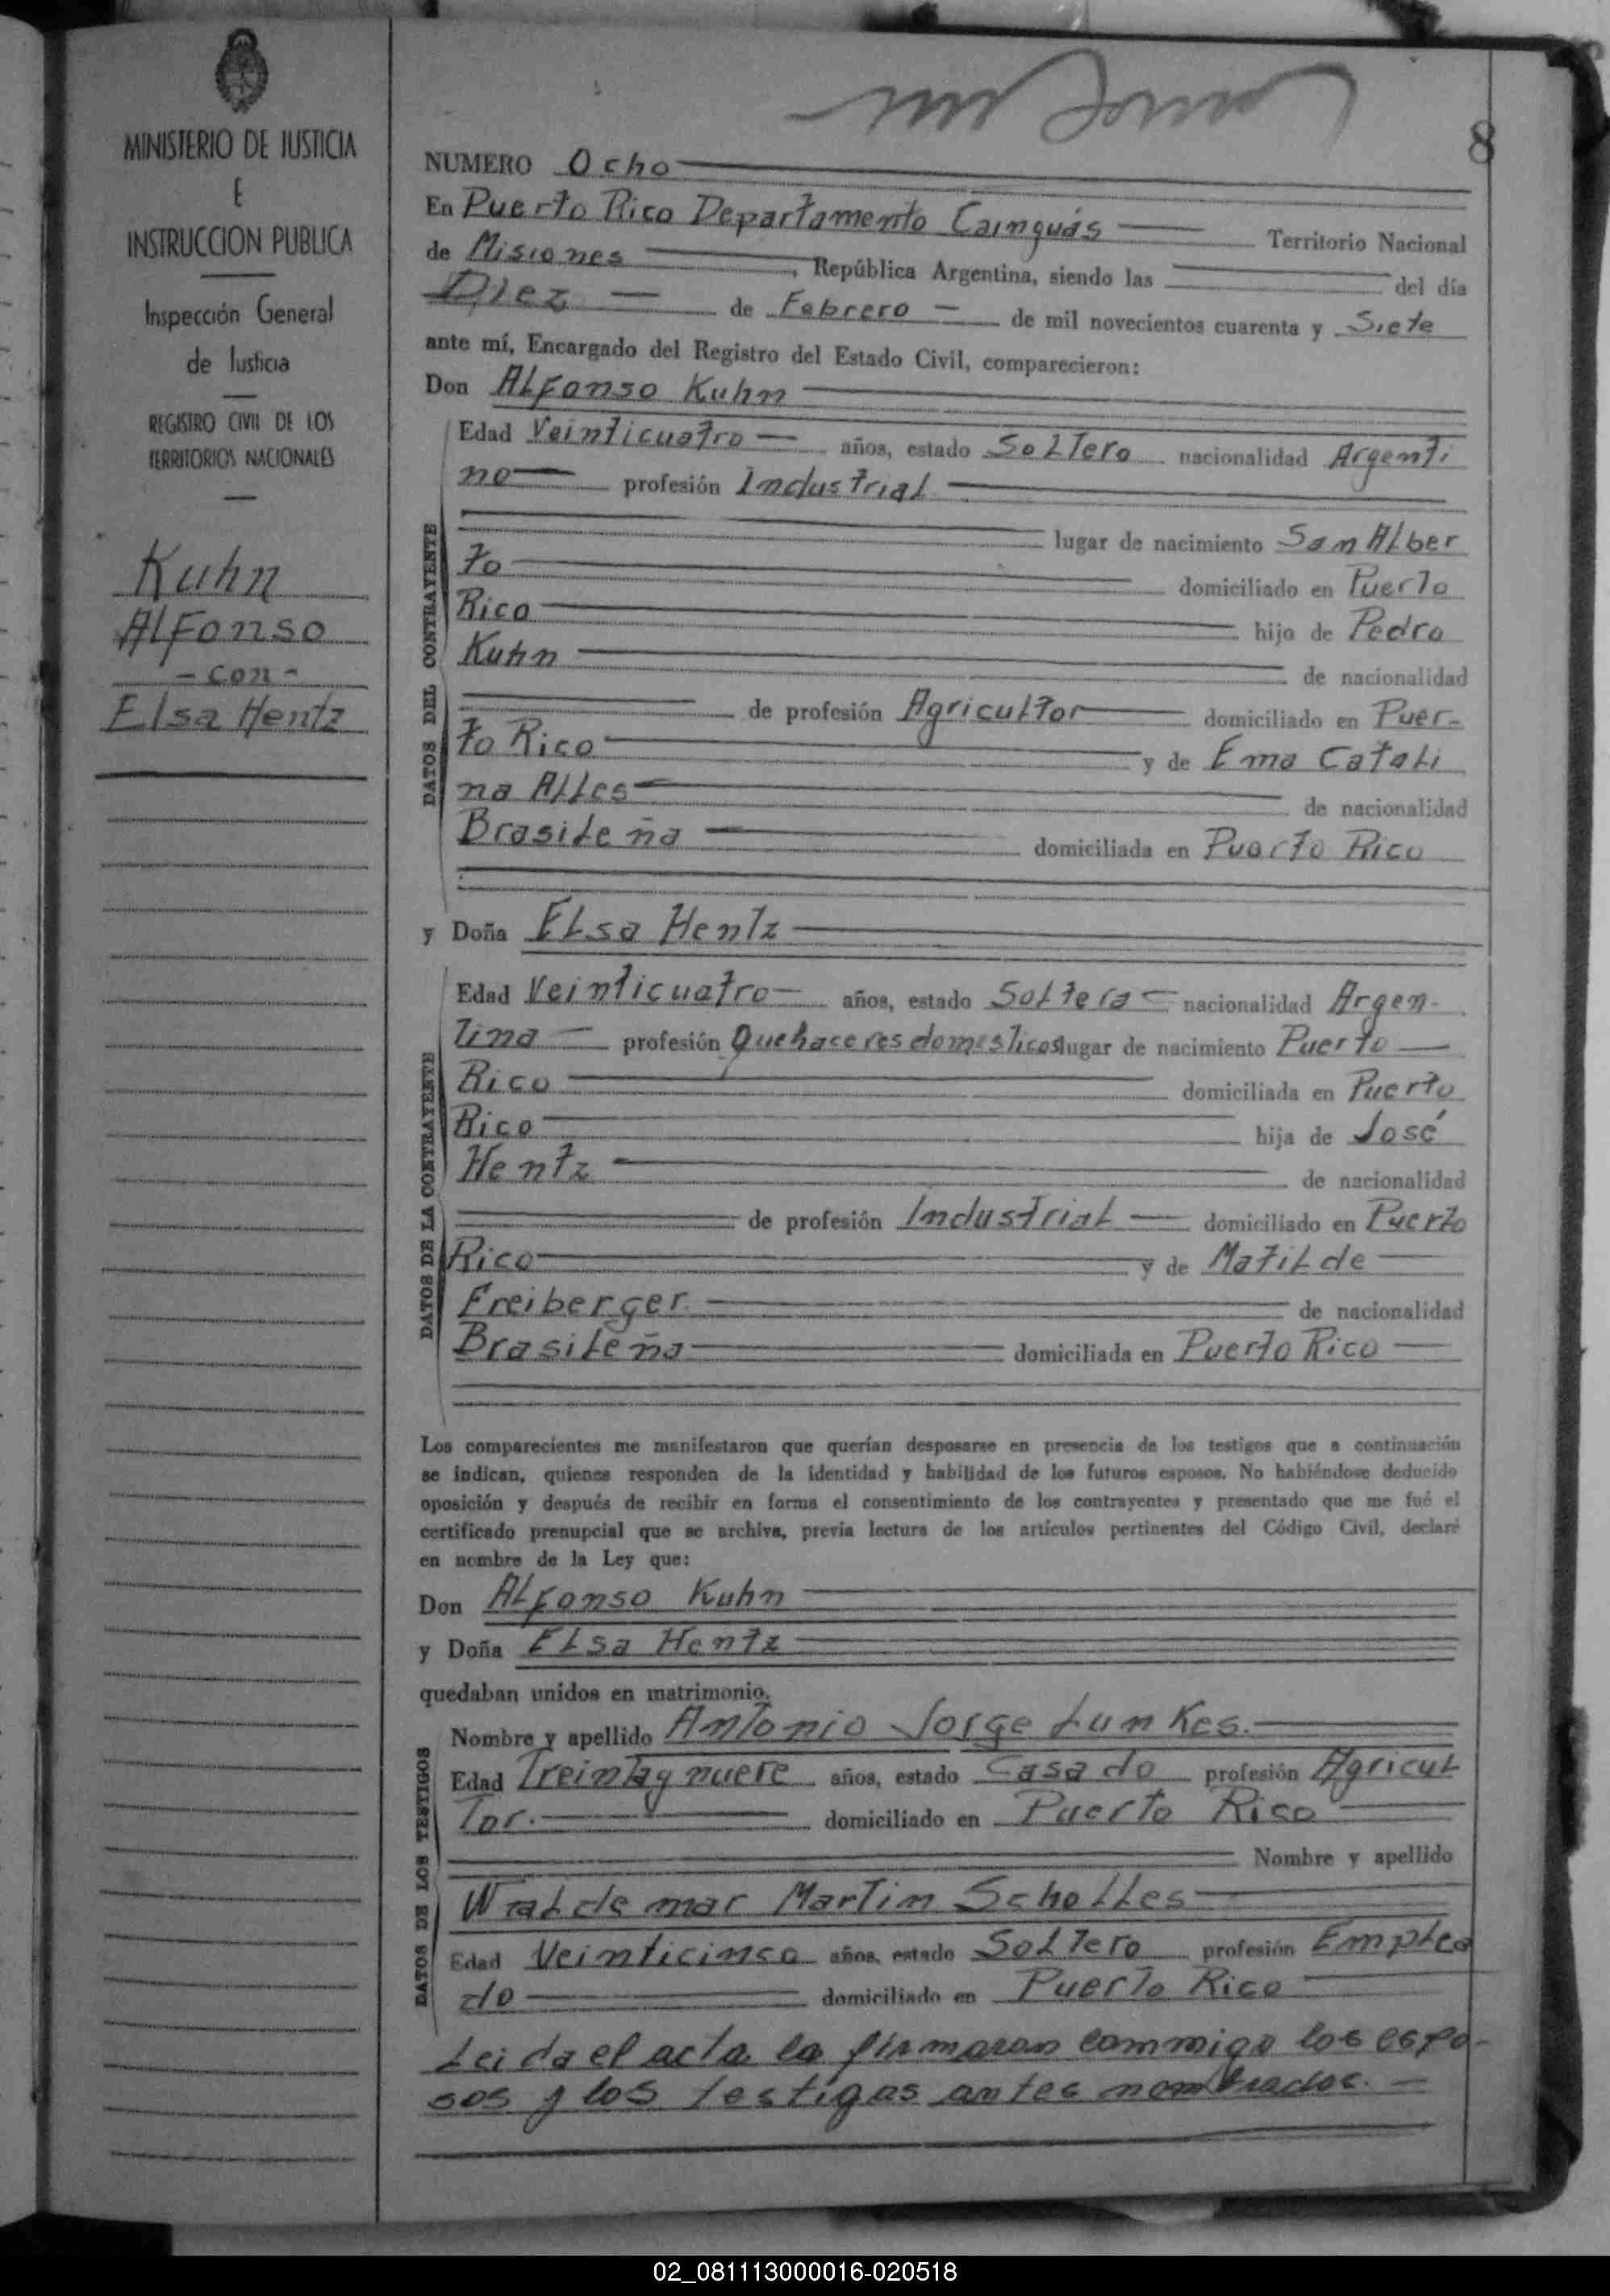 8
MINISTERIO DE JUSTICIA
E
INSTRUCCION PUBLICA
Inspección General
de Justicia
REGISTRO CIVIL DE LOS
TERRITORIOS NACIONALES
Kuhn
Alfonso
- con -
Elsa Hentz
NUMERO Ocho
En Puerto Rico Departamento Cainguás Territorio Nacional
de Misiones , República Argentina, siendo las del día
Diez de Febrero de mil novecientos cuarenta y Siete
ante mí, Encargado del Registro del Estado Civil, comparecieron:
Don Alfonso Kuhn
DATOS DEL CONTRAYENTE
Edad Veinticuatro años, estado Soltero nacionalidad Argenti
no profesión Industrial
lugar de nacimiento San Alber
to domiciliado en Puerto
Rico hijo de Pedro
Kuhn de nacionalidad
de profesión Agricultor domiciliado en Puer-
to Rico y de Ema Catali
na Alles de nacionalidad
Brasileña domiciliada en Puerto Rico
y Doña Elsa Hentz
DATOS DE LA CONTRAYENTE
Edad Veinticuatro años, estado Soltera nacionalidad Argen-
tina profesión Quehaceres domesticos lugar de nacimiento Puerto
Rico domiciliada en Puerto
Rico hija de José
Hentz de nacionalidad
de profesión Industrial domiciliado en Puerto
Rico y de Matilde
Freiberger de nacionalidad
Brasileña domiciliada en Puerto Rico
Los comparecientes me manifestaron que querían desposarse en presencia de los testigos que a continuación
se indican, quienes responden de la identidad y habilidad de los futuros esposos. No habiéndose deducido
oposición y después de recibir en forma el consentimiento de los contrayentes y presentado que me fué el
certificado prenupcial que se archiva, previa lectura de los artículos pertinentes del Código Civil, declaré
en nombre de la Ley que:
Don Alfonso Kuhn
y Doña Elsa Hentz
quedaban unidos en matrimonio.
DATOS DE LOS TESTIGOS
Nombre y apellido Antonio Jorge Lunkes.
Edad Treintay nueve años, estado Casado profesión Agricul
tor. domiciliado en Puerto Rico
Nombre y apellido
Waldemar Martin Scholles
Edad Veinticinco años, estado Soltero profesión Emplea
do domiciliado en Puerto Rico
Leida el acta la firmaron conmigo los espo-
sos y los testigos antes nombrados. -
02_081113000016-020518